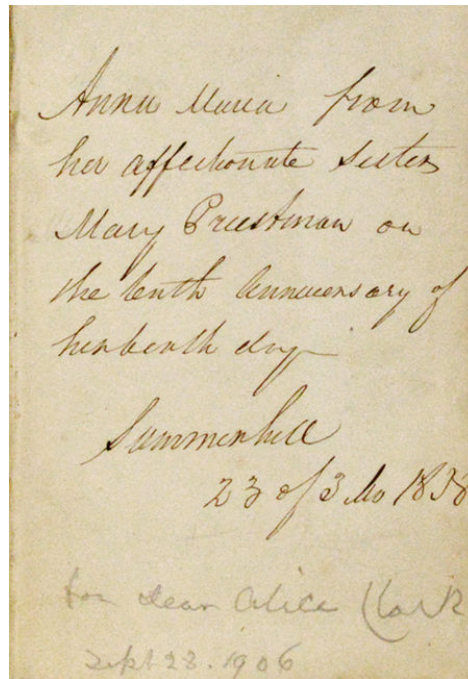 Anna Maria from
her affectionate sister
Mary Priestman on
the tenth anniversary of
her birth day
Summerhill
23 of 3 Mo 1838
for dear Alice Clark
Sept 28. 1906